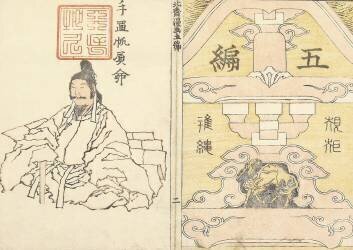 五編
規矩
準繩
北斎漫画五編
二
手置帆負命